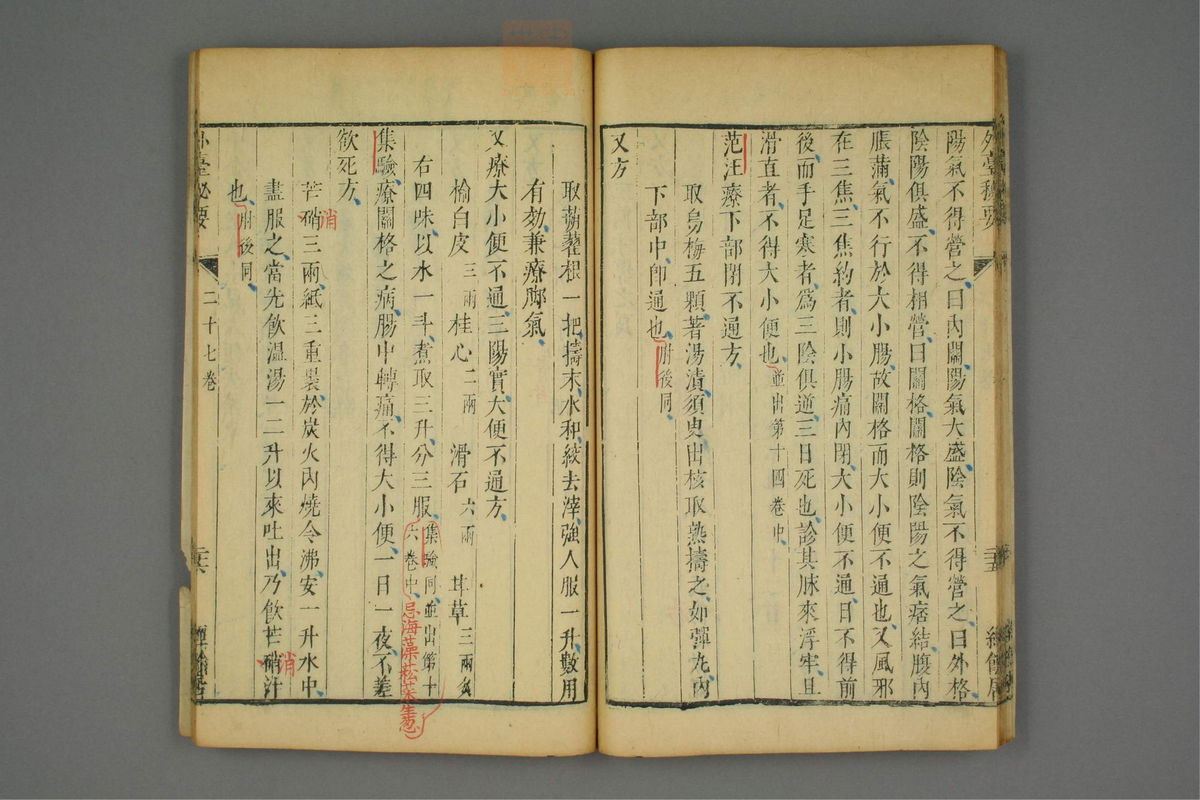 外臺秘要
陽氣不得營之曰內關陽氣大盛陰氣不得營之曰外格
陰陽俱盛不得相營曰關格關格則陰陽之氣痞結腹內
脹滿氣不行於大小腸故關格而大小便不通也又風邪
在三焦三焦約者則小腸痛內閉大小便不通日不得前
後而手足寒者為三陰俱逆三日死也診其脉來浮牢且
滑直者不得大小便也並出第十四卷中
范汪療下部閉不通方
取烏梅五顆著湯漬須臾出核取熟擣之如彈丸內
下部中卽通也肘後同
又方
取蒴藋根一把擣末水和絞去滓強人服一升數用
有効兼療脚氣
又療大小便不通三陽實大便不通方
榆白皮三兩 桂心二兩 滑石六兩 甘草三兩炙
右四味以水一斗煮取三升分三服集驗同並出第十
六卷中
忌海藻菘菜生葱
集驗療關格之病腸中轉痛不得大小便一日一夜不差
欲死方
芒硝三兩紙三重裹於炭火內燒令沸安一升水中
消
盡服之當先飲溫湯一二升以來吐出乃飲芒硝汁
消
也肘後同
外臺秘要
二十七卷
二六